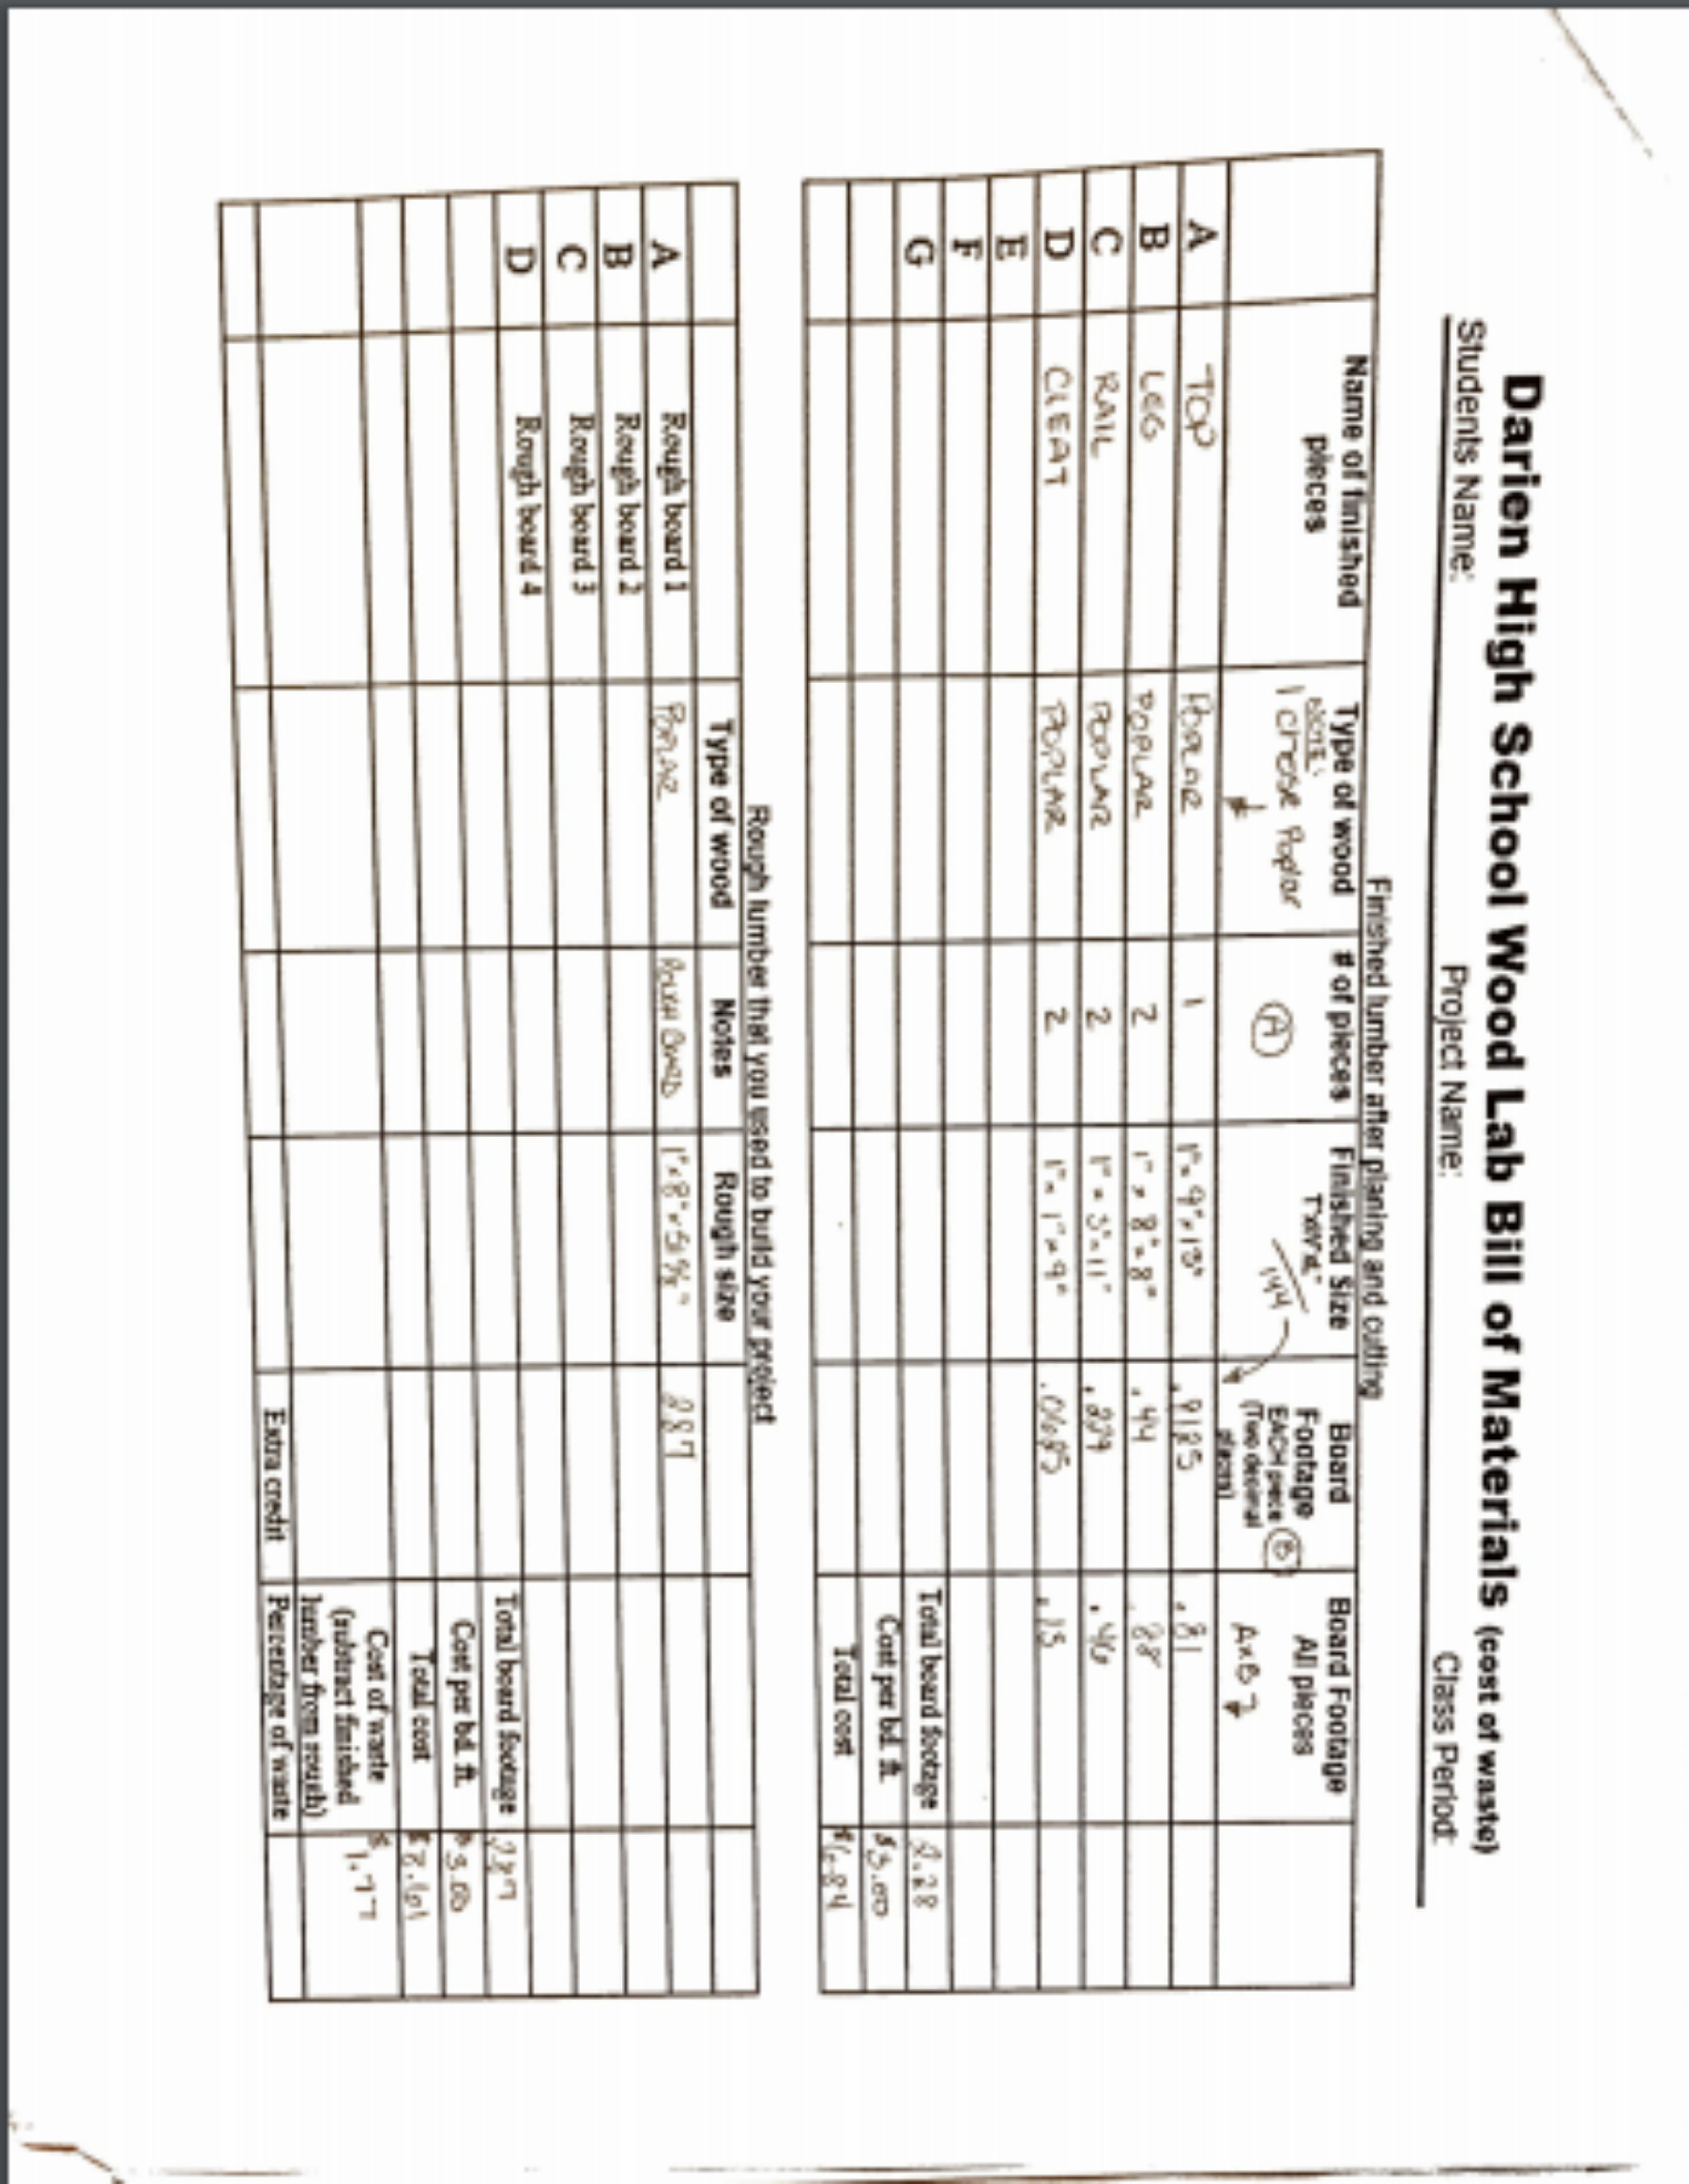 Darien High School Wood Lab Bill of Materials (cost of waste)
Students Name: Project Name: Class Period:
Finished lumber after planing and cutting
Name of finished pieces Type of wood # of pieces Finished Size Board Footage EACH piece (Two decimal places) Board Footage All pieces
NOTE: 1 CHOSE Poplar A T"xW"xL" 144 B A x B
A TOP POPLAR 1 1" x 9" x 13" .81
B LEG POPLAR 2 1" x 8" x 8" .44 .88
C RAIL POPLAR 2 1" x 3" x 11" .229 .46
D CLEAT POPLAR 2 1" x 1" x 9" .15
E
F
G Total board footage 2.28
Cost per bd. ft. $3.00
Total cost $6.84
Rough lumber that you used to build your project
Type of wood Notes Rough size
A Rough board 1 POPLAR ROUGH BOARD 287
B Rough board 2
C Rough board 3
D Rough board 4 Total board footage 287
Cost per bd. ft. $3.00
Total cost $8.61
Cost of waste (subtract finished lumber from rough) $1.77
Extra credit Percentage of waste